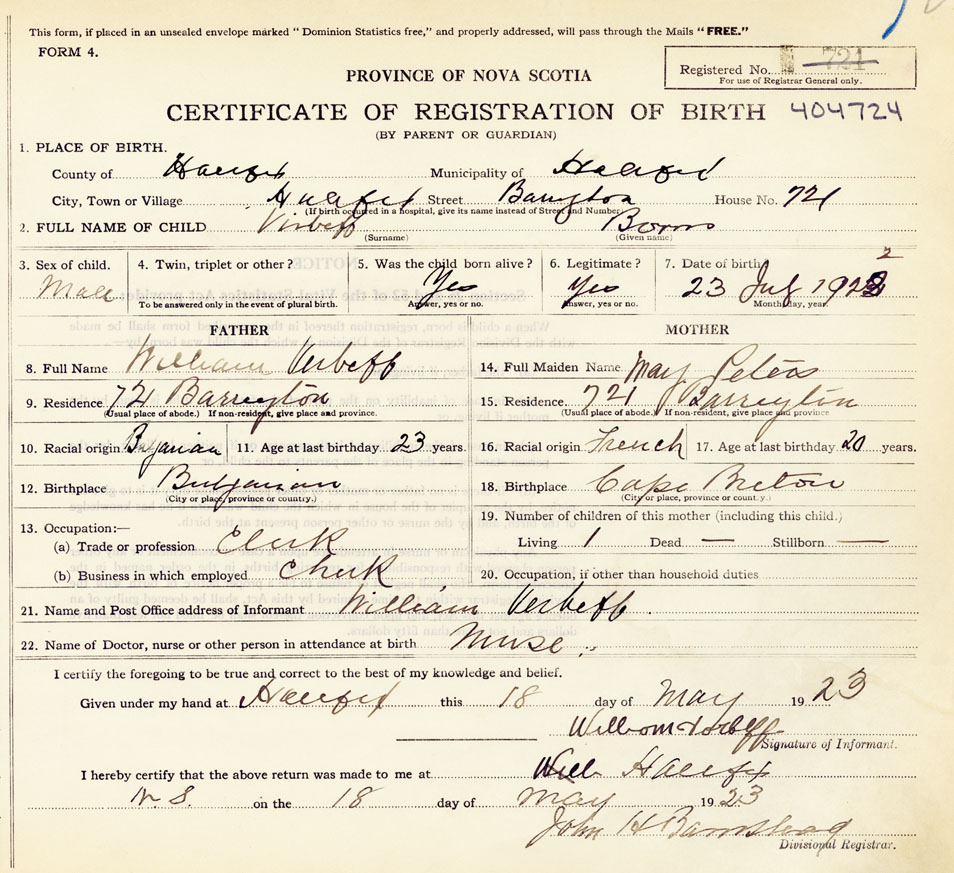 This form, if placed in an unsealed envelope marked " Dominion Statistics free," and properly addressed, will pass through the Mails "FREE."
FORM 4.
Registered No. 724
For use of Registrar General only.
PROVINCE OF NOVA SCOTIA
CERTIFICATE OF REGISTRATION OF BIRTH 404724
(BY PARENT OR GUARDIAN)
1. PLACE OF BIRTH.
County of Halifax Municipality of Halifax
City, Town or Village Halifax Street Barryton House No. 721
(If birth occurred in a hospital, give its name instead of Street and Number)
2. FULL NAME OF CHILD Verbeff Borris
(Surname) (Given name)
3. Sex of child. 4. Twin, triplet or other? 5. Was the child born alive? 6. Legitimate? 7. Date of birth 2
Male Yes Yes 23 July 192
To be answered only in the event of plural birth. Answer, yes or no. Answer, yes or no. Month, day, year.
FATHER MOTHER
8. Full Name William Verbeff
14. Full Maiden Name May Peters
9. Residence 721 Barryton
(Usual place of abode.) If non-resident, give place and province.
15. Residence. 721 Barryton
(Usual place of abode.) If non-resident, give place and province
10. Racial origin Bulgarian 11. Age at last birthday 23 years.
16. Racial origin French 17. Age at last birthday 20 years.
12. Birthplace Bulgarian
(City or place, province or country.)
18. Birthplace Cape Breton
(City or place, province or country.)
13. Occupation:—
(a) Trade or profession Clerk
(b) Business in which employed Clerk
19. Number of children of this mother (including this child.)
Living 1 Dead — Stillborn —
20. Occupation, if other than household duties
21. Name and Post Office address of Informant William Verbeff.
22. Name of Doctor, nurse or other person in attendance at birth Nurse
I certify the foregoing to be true and correct to the best of my knowledge and belief.
Given under my hand at Halifax this 18 day of May 1923
William Verbeff
Signature of Informant.
I hereby certify that the above return was made to me at Halifax
N. S. on the 18 day of May 1923
John H Barnstead
Divisional Registrar.